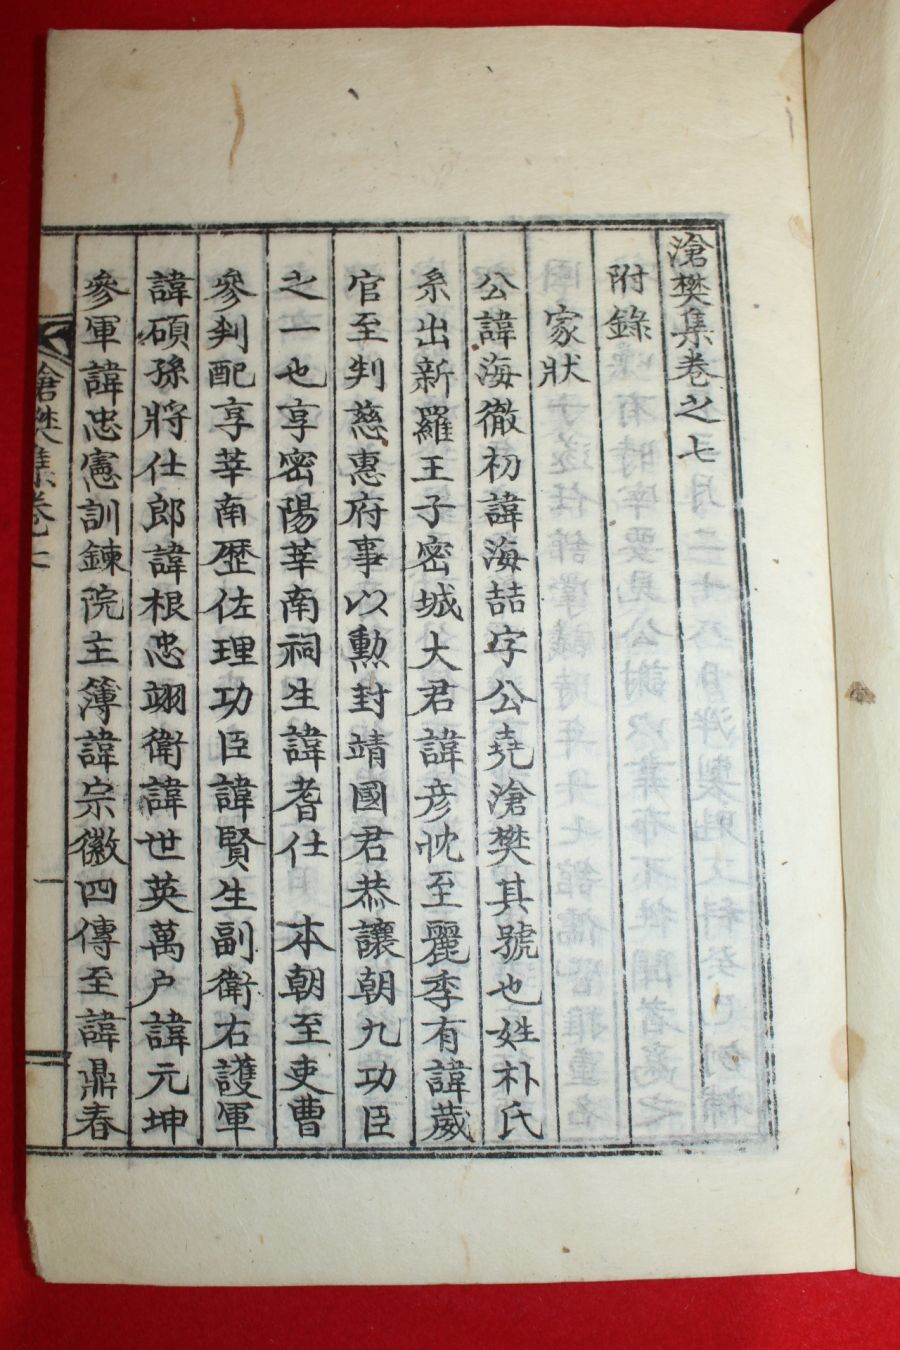 滄樊集卷之七
附錄
家狀
公諱海徹初諱海喆字公堯滄樊其號也姓朴氏
系出新羅王子密城大君諱彦忱至麗季有諱葳
官至判慈惠府事以勳封靖國君恭讓朝九功臣
之一也享密陽莘南祠生諱耆仕 本朝至吏曹
參判配享莘南歷佐理功臣諱賢生副衛右護軍
諱碩孫將仕郎諱根忠翊衛諱世英萬户諱元坤
參軍諱忠憲訓鍊院主簿諱宗徽四傳至諱鼎春
滄樊集卷七
一